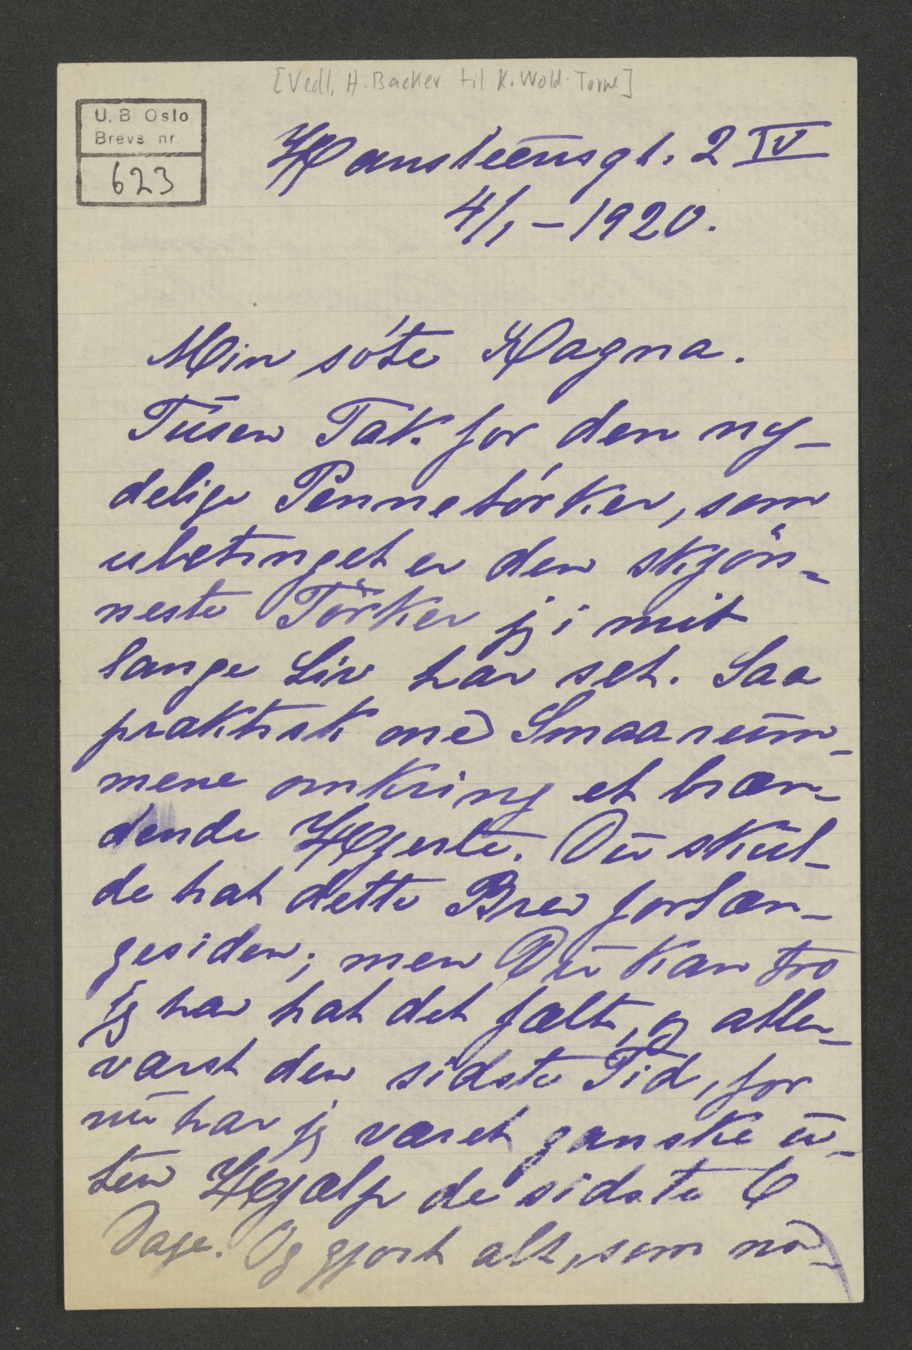 [Vedl, H. Backer til K. Wold-Torne]
U. B. Oslo
Brevs. nr.
623
Hansteensgt. 2 IV
4/1 – 1920.
Min söte Ragna.
Tusen Tak for den ny-
delige Pennetörker, som
ubetinget er den skjön-
neste Törker jg i mit
lange Liv har set. Saa
praktisk med Smaarum-
mene omkring et bræn-
dende Hjerte. Du skul-
de hat dette Brev forlæn-
gesiden; men Du kan tro
jg har hat det fælt, og aller-
værst den sidste Tid, for
nu har jg været ganske u-
ten Hjælp de sidste 6
Dage. Og gjort alt, som nö-